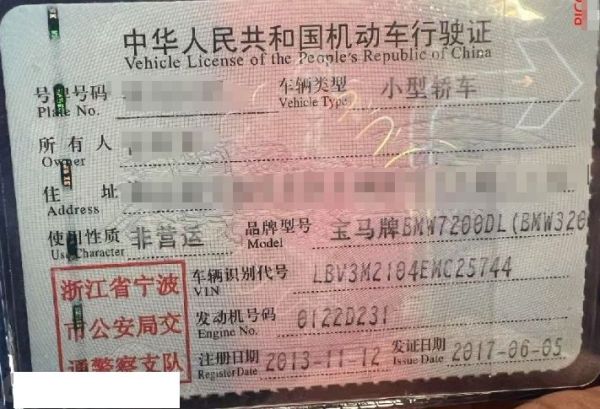 中华人民共和国机动车行驶证
Vehicle License of the People's Republic of China
号牌号码 车辆类型 小型轿车
Plate No. Vehicle Type
所有人
Owner
住 址
Address
使用性质 非营运 品牌型号 宝马牌BMW7200DL(BMW320
Use Character Model
浙江省宁波
市公安局交
通警察支队
车辆识别代号 LBV3M2104EMC25744
VIN
发动机号码 0122D231
Engine No.
注册日期 2013-11-12 发证日期 2017-06-05
Register Date Issue Date